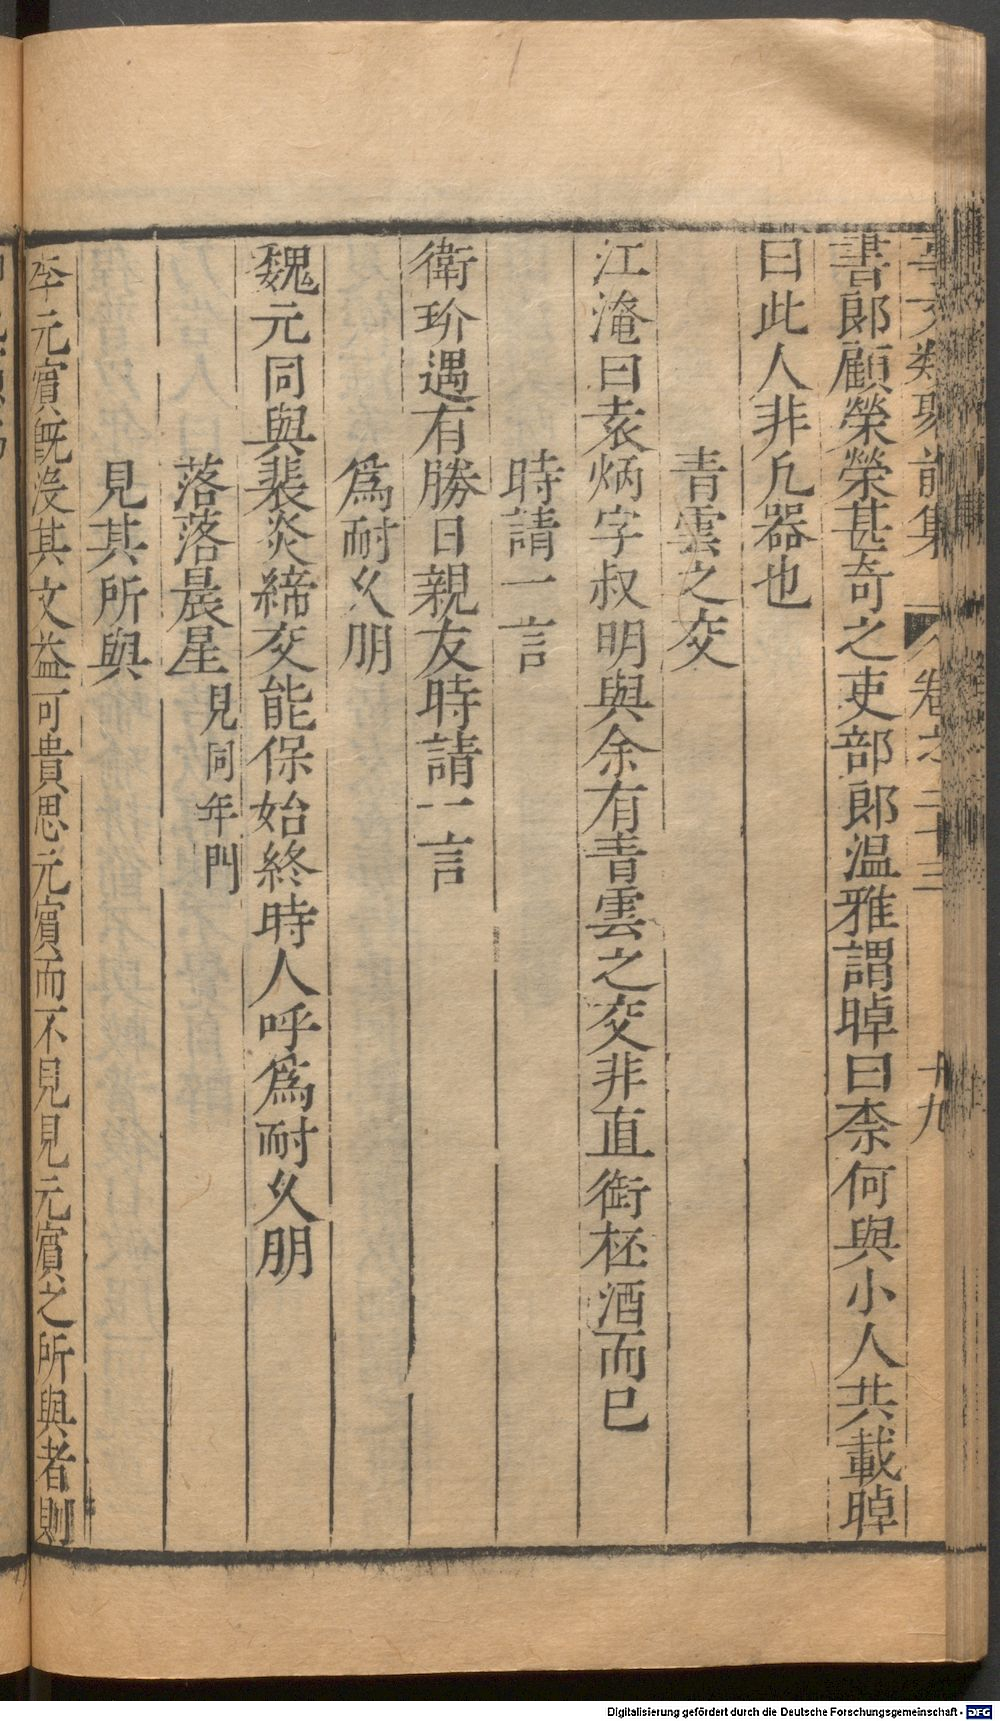 事文類聚前集 卷之二十三 十九
書郎顧榮榮甚奇之吏部郎溫雅謂晫曰柰何與小人共載晫
曰此人非凡器也
青雲之交
江淹曰袁炳字叔明與余有青雲之交非直銜桮酒而已
時請一言
衛玠遇有勝日親友時請一言
爲耐久朋
魏元同與裴炎締交能保始終時人呼爲耐久朋
落落晨星見同年門
見其所與
李元賓旣沒其文益可貴思元賓而不見見元賓之所與者則
Digitalisierung gefördert durch die Deutsche Forschungsgemeinschaft - DFG